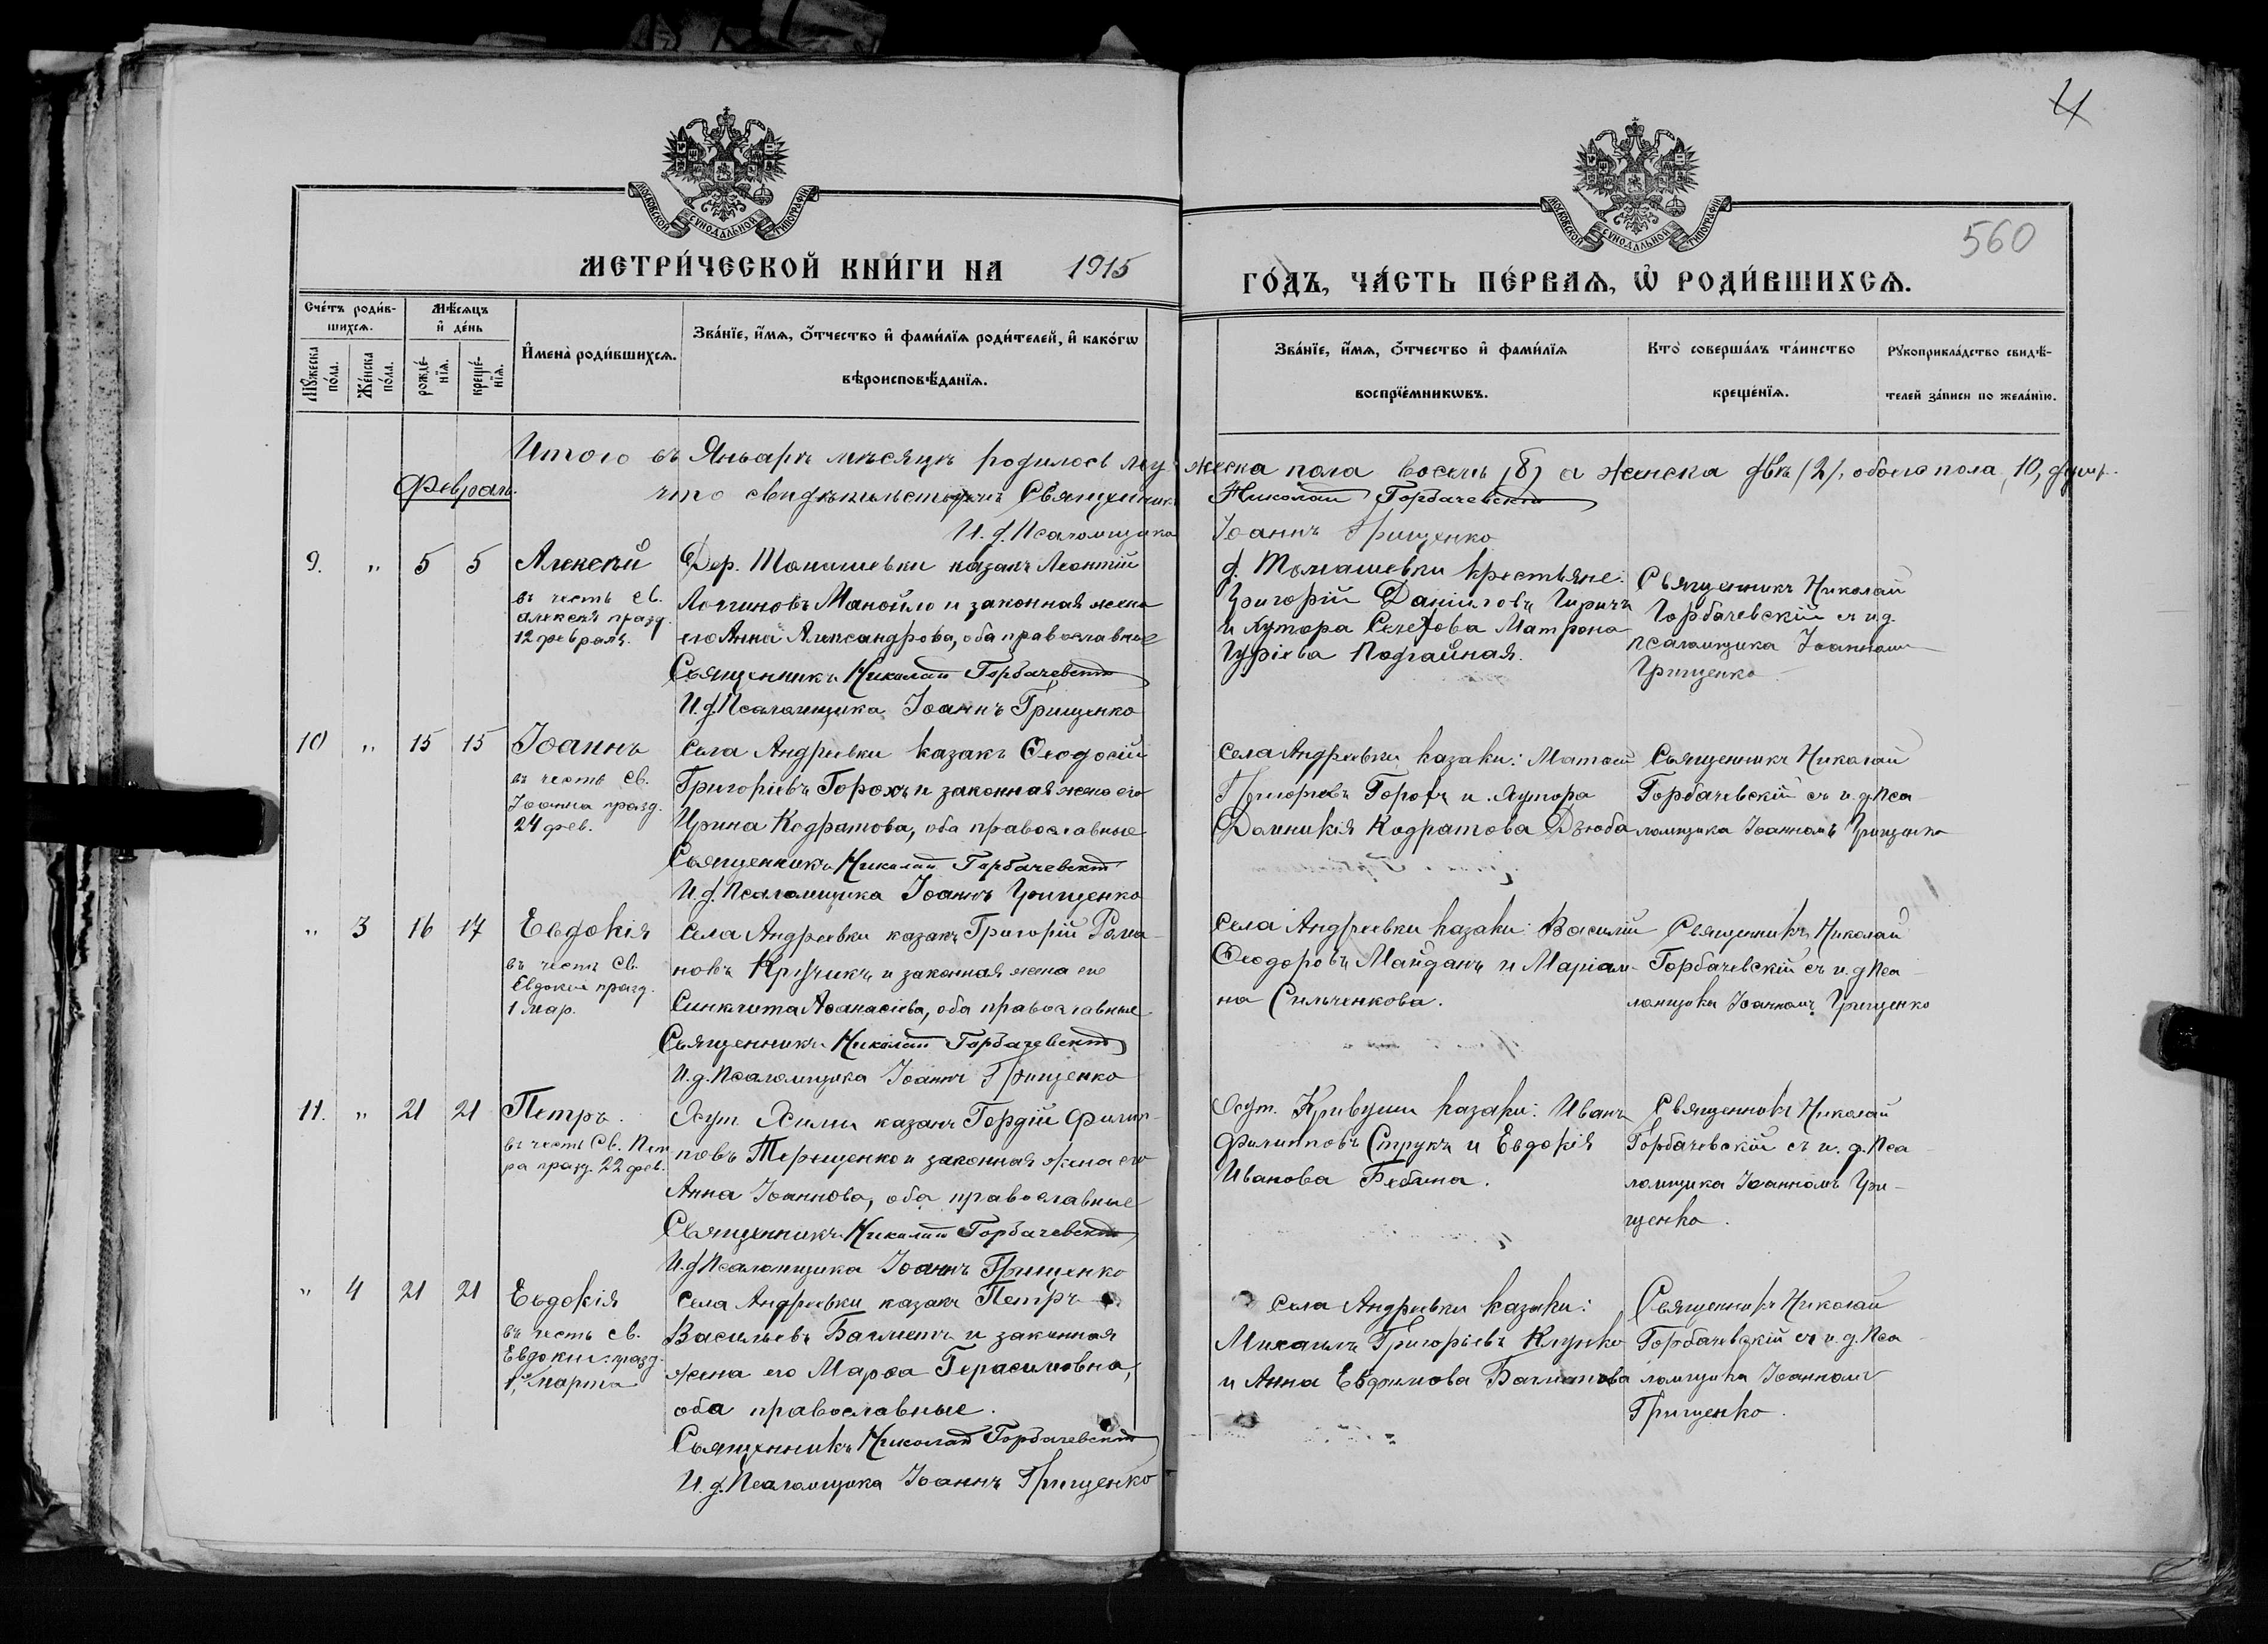 4
560
МОСКОВСКОЙ СѴНОДАЛЬНОЙ ТИПОГРАФІИ
МОСКОВСКОЙ СѴНОДАЛЬНОЙ ТИПОГРАФІИ
МЕТРИ́ЧЕСКОЙ КНИ́ГИ НА 1915 ГО́ДЪ, ЧА́СТЬ ПЕ́РВАѦ, Ѡ҆ РОДИ́ВШИХСѦ.
Сче́тъ роди́вшихсѧ.
Мѣ́сѧцъ и҆ де́нь
Мꙋ́жеска по́ла.
Же́нска по́ла.
рожде́нїѧ.
креще́нїѧ.
И҆мена̀ роди́вшихсѧ.
Зва́нїе, и҆́мѧ, ѻ҆́тчество и҆ фами́лїѧ роди́телей, и҆ како́гѡ
вѣроисповѣ́данїѧ.
Зва́нїе, и҆́мѧ, ѻ҆́тчество и҆ фами́лїѧ
воспрїе́мникѡвъ.
Кто̀ соверша́лъ та́инство
креще́нїѧ.
Рꙋкоприкла́дство свидѣ́-
телей за́писи по жела́нїю.
Итого въ Январѣ мѣсяцѣ родилось му-жеска пола восемь /8/ а женска двѣ /2/, обоего пола 10,
Февраль.
что Священникъ Николай Горбачевскій
И. д. Псаломщика Іоаннъ Грищенко
9. " 5 5 Алексѣй
въ честь св.
Алексѣя празд.
12 февраля.
Дер. Томашевки казакъ Леонтій
Логиновъ Манойло и законная жена
его Анна Александрова, оба православные
Священникъ Николай Горбачевскій
И. д. Псаломщика Іоаннъ Грищенко
д. Томашевки крестьяне:
Григорій Даніиловъ
и хутора Матрона
Гуріева Подгайная.
Священникъ Николай
Горбачевскій съ и. д.
псаломщика Іоанномъ
Грищенко
10 " 15 15 Іоаннъ
въ честь св.
Іоанна празд.
24 фев.
Села Андреевки казакъ Ѳеодосій
Григоріевъ Горохъ и законная жена его
Ирина Кодратова, оба православные
Священникъ Николай Горбачевскій
И. д. Псаломщика Іоаннъ Грищенко
Села Андреевки казаки: Матѳей
Григорьевъ Горохъ и хутора
Домникія Кодратова Дзюба
Священникъ Николай
Горбачевскій съ и. д. Пса-
ломщика Іоанномъ Грищенко
" 3 16 17 Евдокія
въ честь Св.
Евдокіи празд.
1 мар.
Села Андреевки казакъ Григорій Рома-
новъ и законная жена его
Синклита Аѳанасіева, оба православные
Священникъ Николай Горбачевскій
И. д. Псаломщика Іоаннъ Грищенко
Села Андреевки казаки: Василій
Ѳеодоровъ Майданъ и Маріам-
на Сильченкова.
Священникъ Николай
Горбачевскій съ и. д. Пса-
ломщика Іоанномъ Грищенко
11. " 21 21 Петръ.
въ честь Св. Пет
ра празд. 22 фев.
Хут. казакъ Гордій Филип-
повъ Терещенко и законная жена его
Анна Іоаннова, оба православные
Священникъ Николай Горбачевскій
И. д. Псаломщика Іоаннъ Грищенко
Хут. Кривуши казаки: Иванъ
Филипповъ Струкъ и Евдокія
Иванова
Священникъ Николай
Горбачевскій съ и. д. Пса-
ломщика Іоанномъ Гри-
щенко.
" 4 21 21 Евдокія
въ честь св.
Евдокіи празд.
1 марта
Села Андреевки казакъ Петръ
Васильевъ Багметъ и законная
жена его Марѳа Герасимовна,
оба православные.
Священникъ Николай Горбачевскій
И. д. Псаломщика Іоаннъ Грищенко
Села Андреевки казаки:
Михаилъ Григорьевъ Клунко
и Анна Евфимова Багметова
Священникъ Николай
Горбачевскій съ и. д. Пса-
ломщика Іоанномъ
Грищенко.